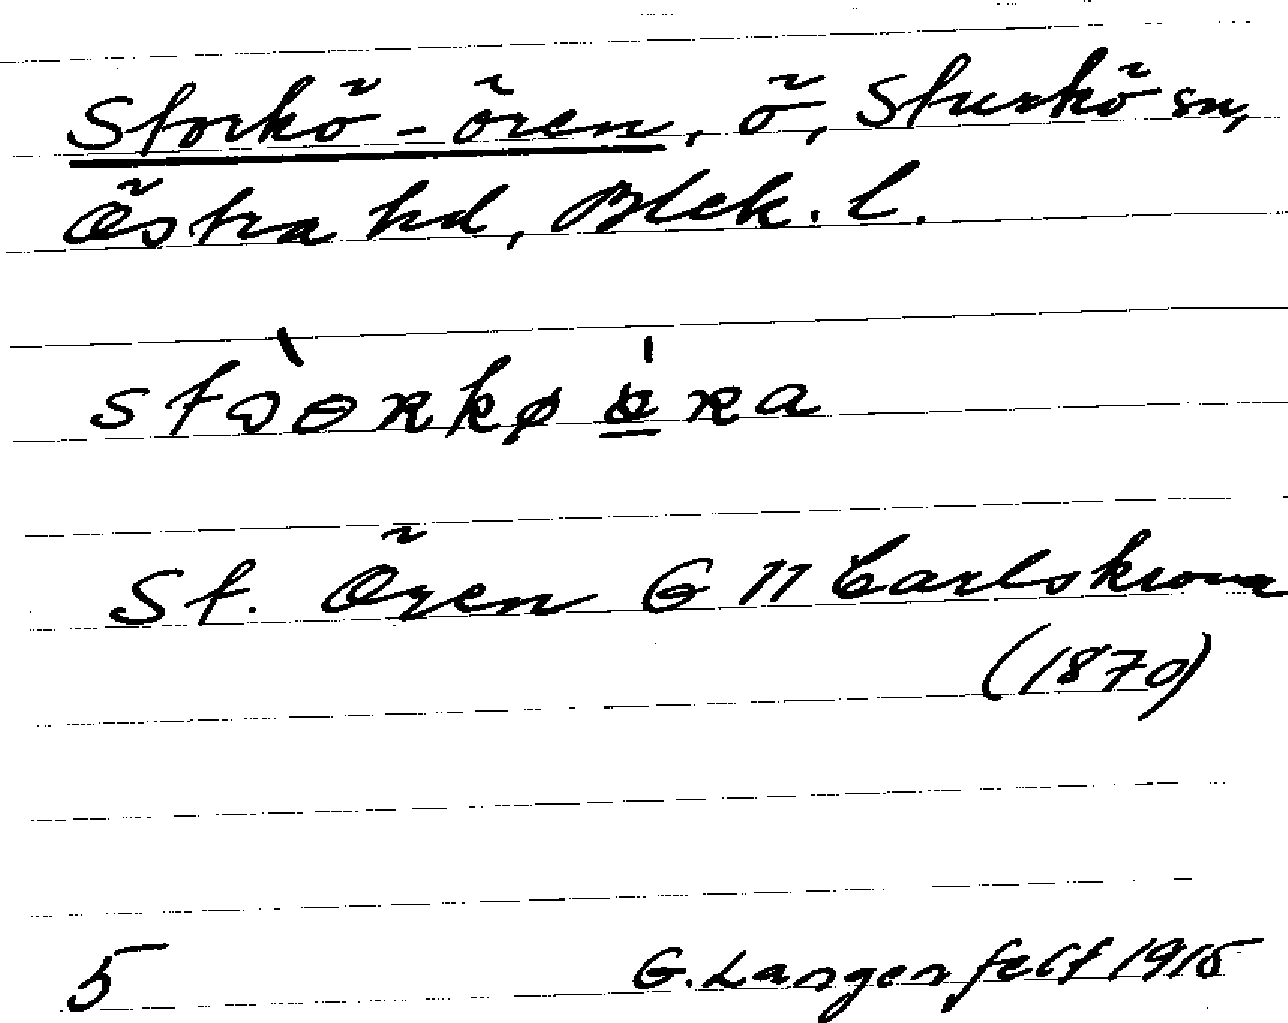 Storkö-ören, ö, Sturkö sn,
Östra hd, Blek. l.
St. Ören G 11 Carlskrona
(1870)
5 G. Langenfelt 1915